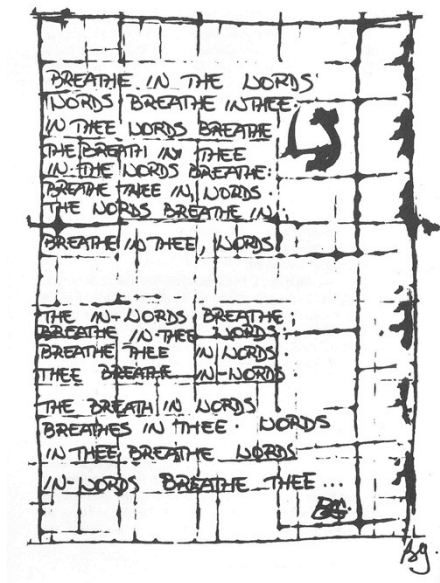 BREATHE IN THE WORDS
WORDS BREATHE IN THEE.
IN THEE WORDS BREATHE
THE BREATH IN THEE
IN THE WORDS BREATHE.
BREATHE THEE IN, WORDS
THE WORDS BREATHE IN.
BREATHE IN THEE, WORDS
THE IN-WORDS BREATHE;
BREATHE IN THEE WORDS.
BREATHE THEE IN WORDS.
THEE BREATHE IN-WORDS.
THE BREATH IN WORDS
BREATHES IN THEE. WORDS
IN THEE, BREATHE WORDS
IN-WORDS BREATHE THEE...
BG.